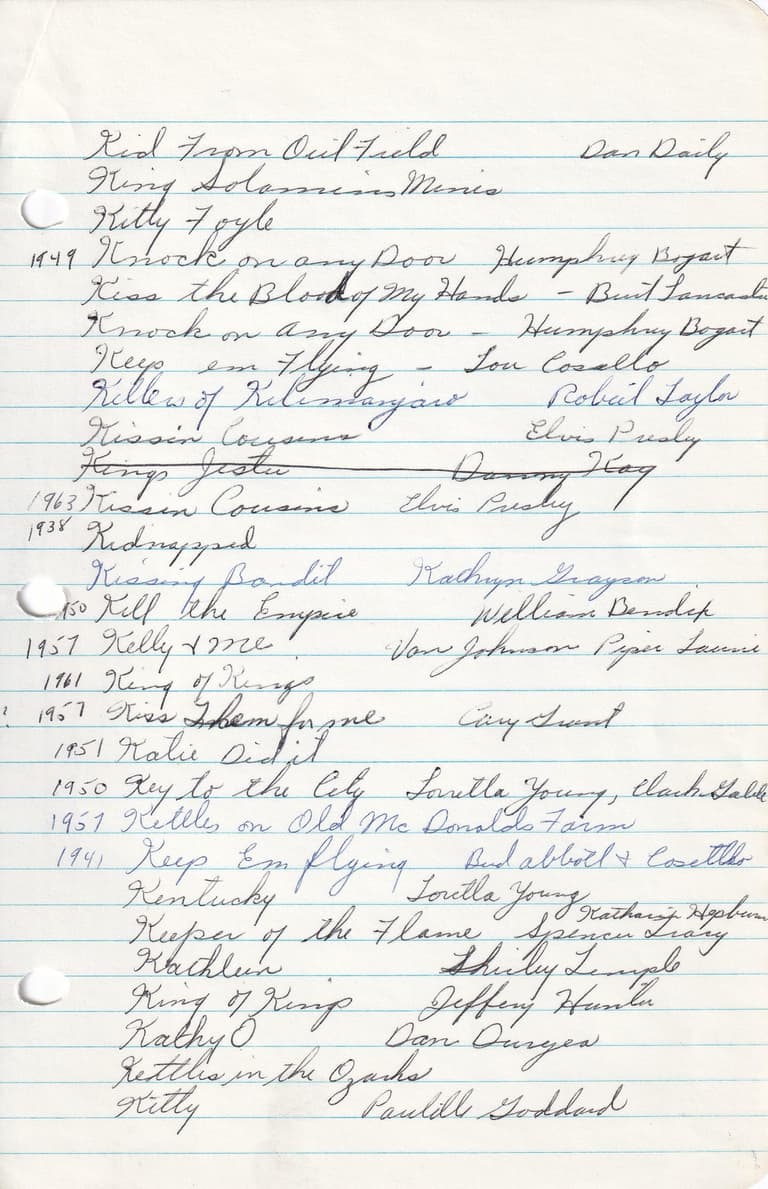 Kid From Oil Field Dan Daily
King Solamins Minis
Kitty Foyle
1949 Knock on any Door Humphrey Bogart
Kiss the Blood of My Hands - Burt Lancaster
Knock on any Door - Humphrey Bogart
Keep em Flying - Lou Cosello
Killers of Kilimanjaro Robert Taylor
Kissin Cousins Elvis Presly
Kings Jester Danny Kay
1963 Kissin Cousins Elvis Presley
1938 Kidnapped
Kissing Bandit Kathryn Grayson
50 Kill the Empire William Bendix
1957 Kelly & Me Van Johnson Piper Laurie
1961 King of Kings
1957 Kiss Them for me Cary Grant
1951 Katie Did it
1950 Key to the City Loretta Young, Clark Gable
1957 Kettles on Old Mc Donalds Farm
1941 Keep Em flying Bud abbott & Cosetllo
Kentucky Loretta Young
Keeper of the Flame Spencer Tracy Katharine Hepburn
Kathleen Shirley Temple
King of Kings Jeffery Hunter
Kathy O Dan Duryea
Kettles in the Ozarks
Kitty Paulette Goddard